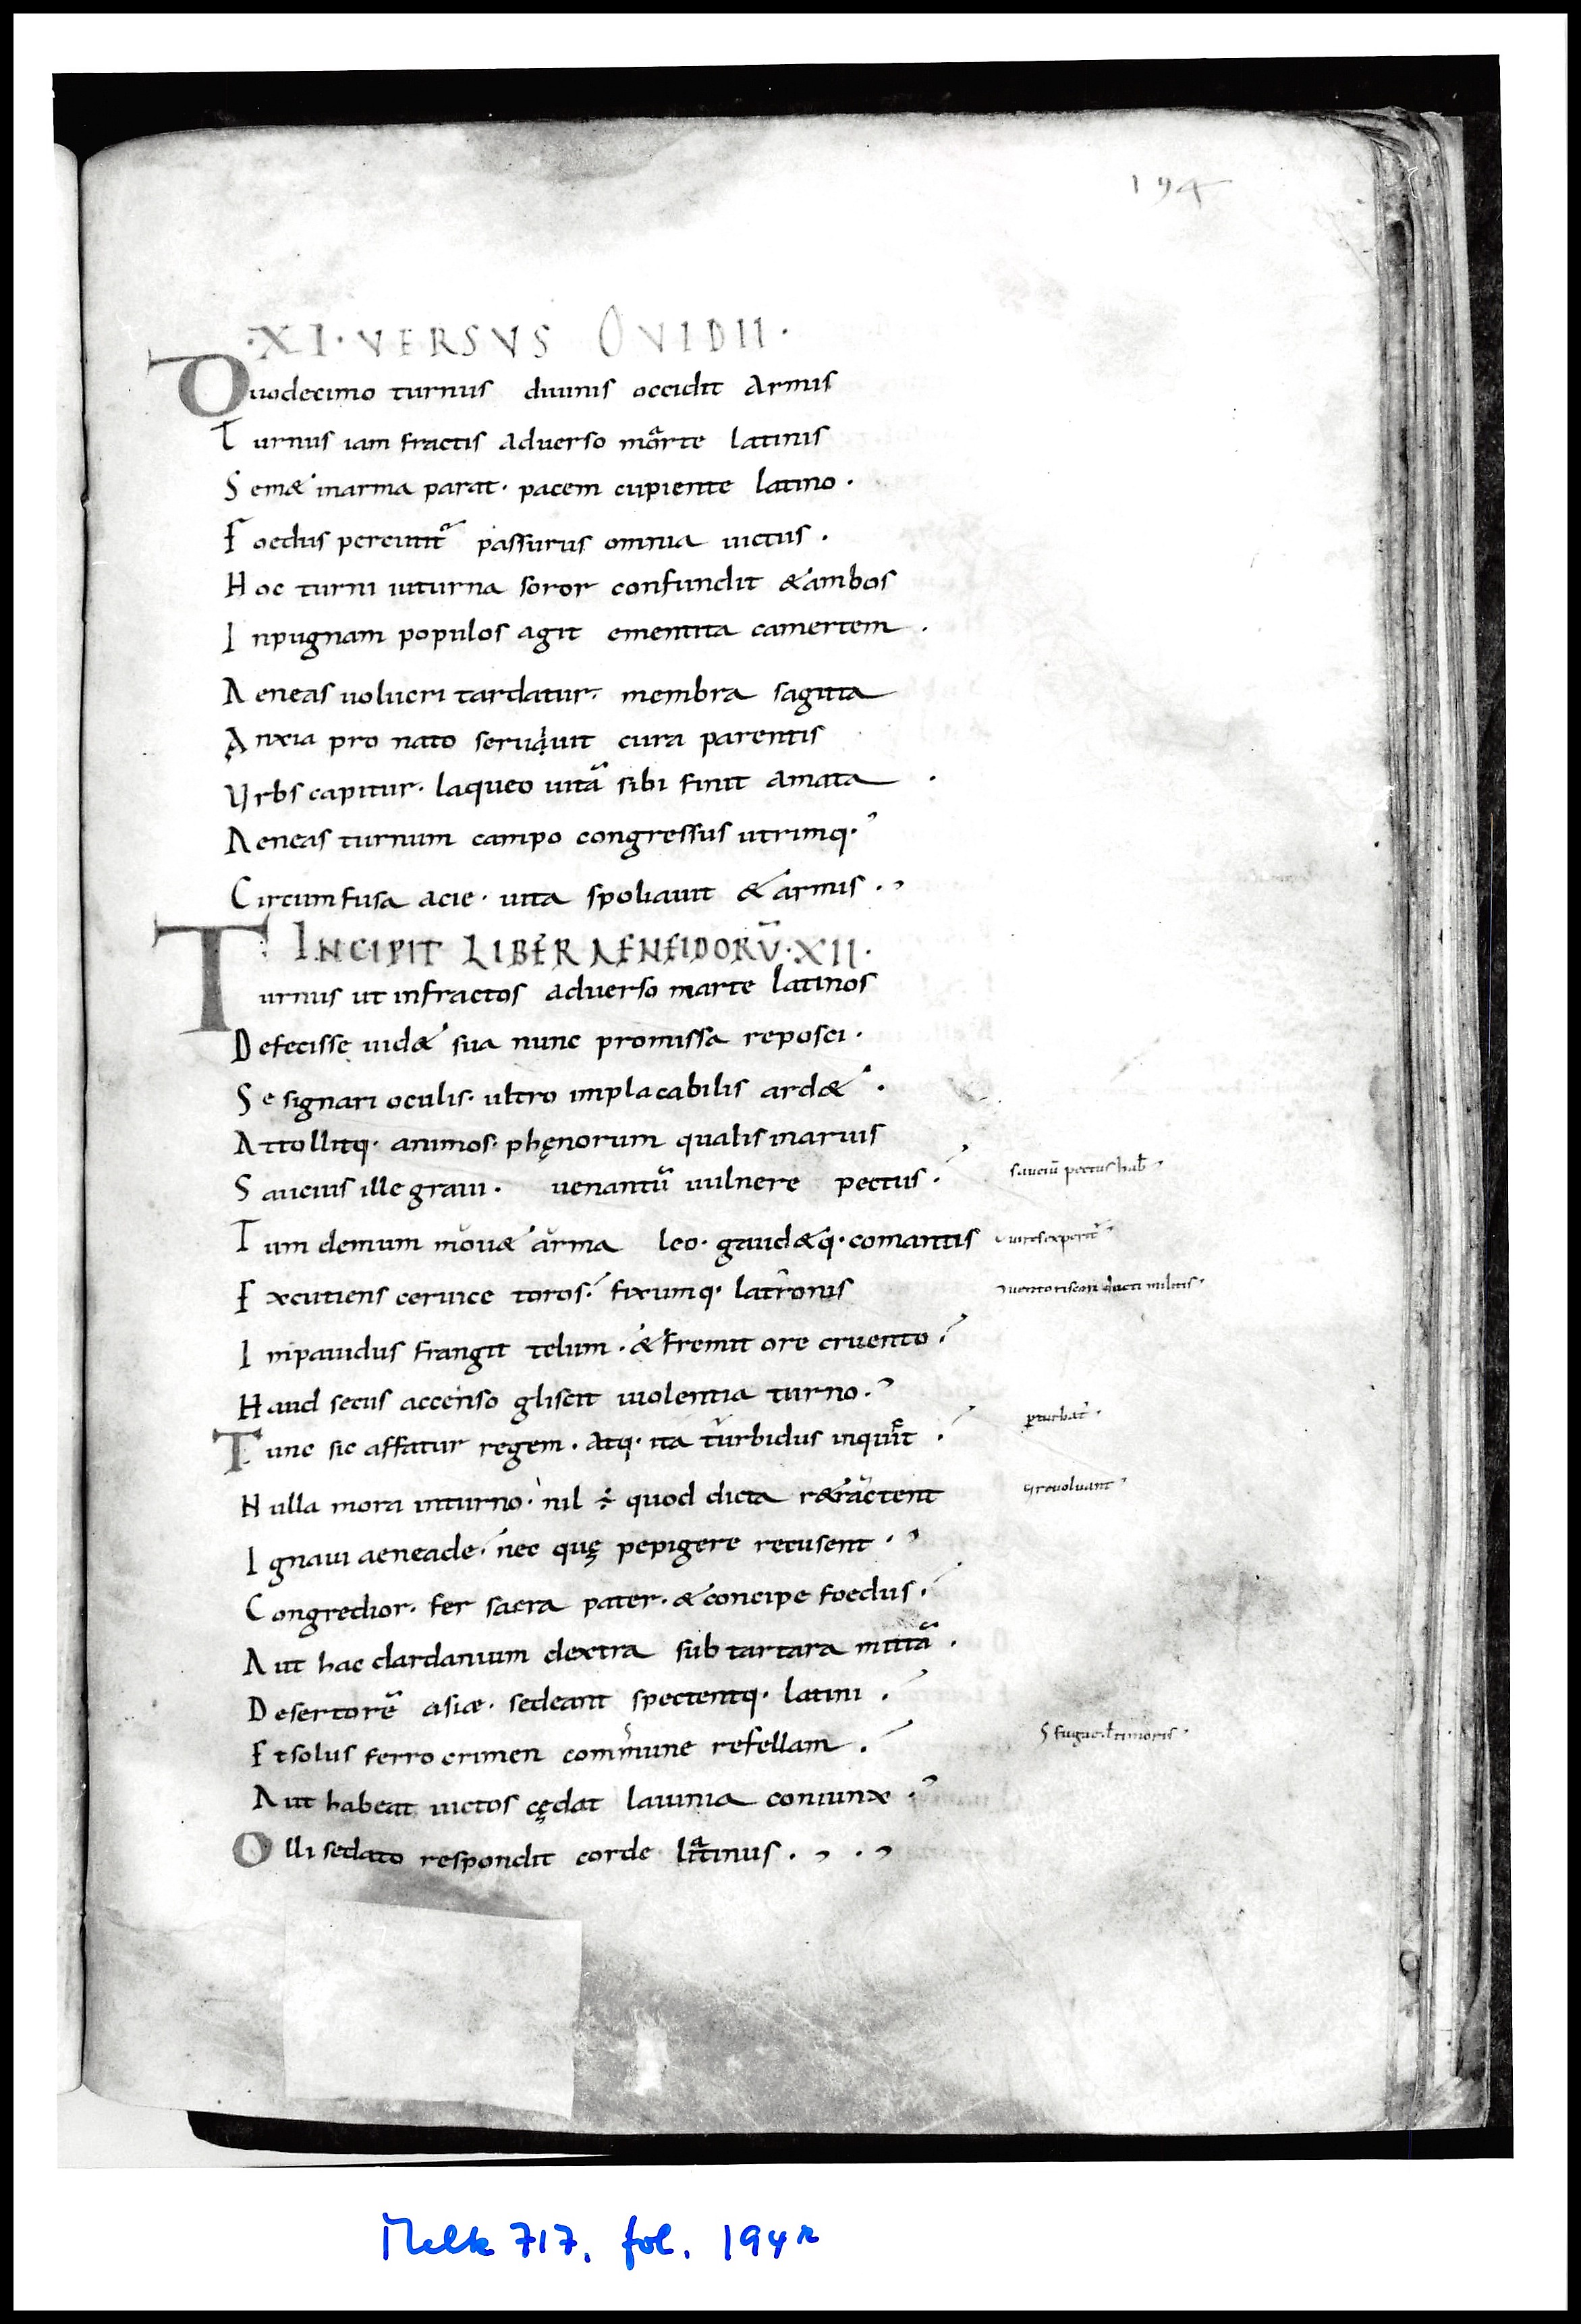 194
·XI· VERSVS OVIDII·
Duodecimo turnus diuinis occidit armis
Turnus iam fractis aduerso marte latinis
Semæ inarma parat· pacem cupiente latino·
Foedus percutitᷓ passurus omnia uictus·
Hoc turni iuturna soror confundit &ambos
Inpugnam populos agit ementita camertem·
Aeneas uolucri tardatur· membra sagitta
Anxia pro nato seruauit cura parentis
Vrbs capitur· laqueo uitā sibi finit amata·
Aeneas turnum campo congressus utrimq·
Circumfusa acie· uita spoliauit & armis·
INCIPIT LIBER AENEIDORV̄·XII·
Turnus ut infractos aduerso marte latinos
Defecisse uid& sua nunc promissa reposci·
Se signari oculis· ultro implacabilis ard&·
Attollitq· animos· phęnorum qualis inaruis
Saucius ille graui· uenantū uulnere pectus·
sauciū pectus hab̄
Tum demum mou& arma leo· gaud&q· comantis
Excutiens ceruice toros· fixumq· latronis
Inpauidus frangit telum· & fremit ore cruento·
Haud secus accenso gliscit uiolentia turno·
Tunc sic affatur regem· atq· ita turbidus inquit·
ꝑturbat᷑·
Nulla mora inturno· nil ÷ quod dicta r&ractent
reuoluant
Ignaui aeneade· nec quę pepigere recusent·
Congredior· fer sacra pater· & concipe foedus·
Aut hac dardanium dextra sub tartara mittā·
Desertorē asiæ· sedeant spectentq· latini·
Et solus ferro crimen commune refellam·
S fugae ł timoris·
Aut habeat uictos cędat lauinia coniunx·
Olli sedato respondit corde latinus·
Melk 717. fol. 194r